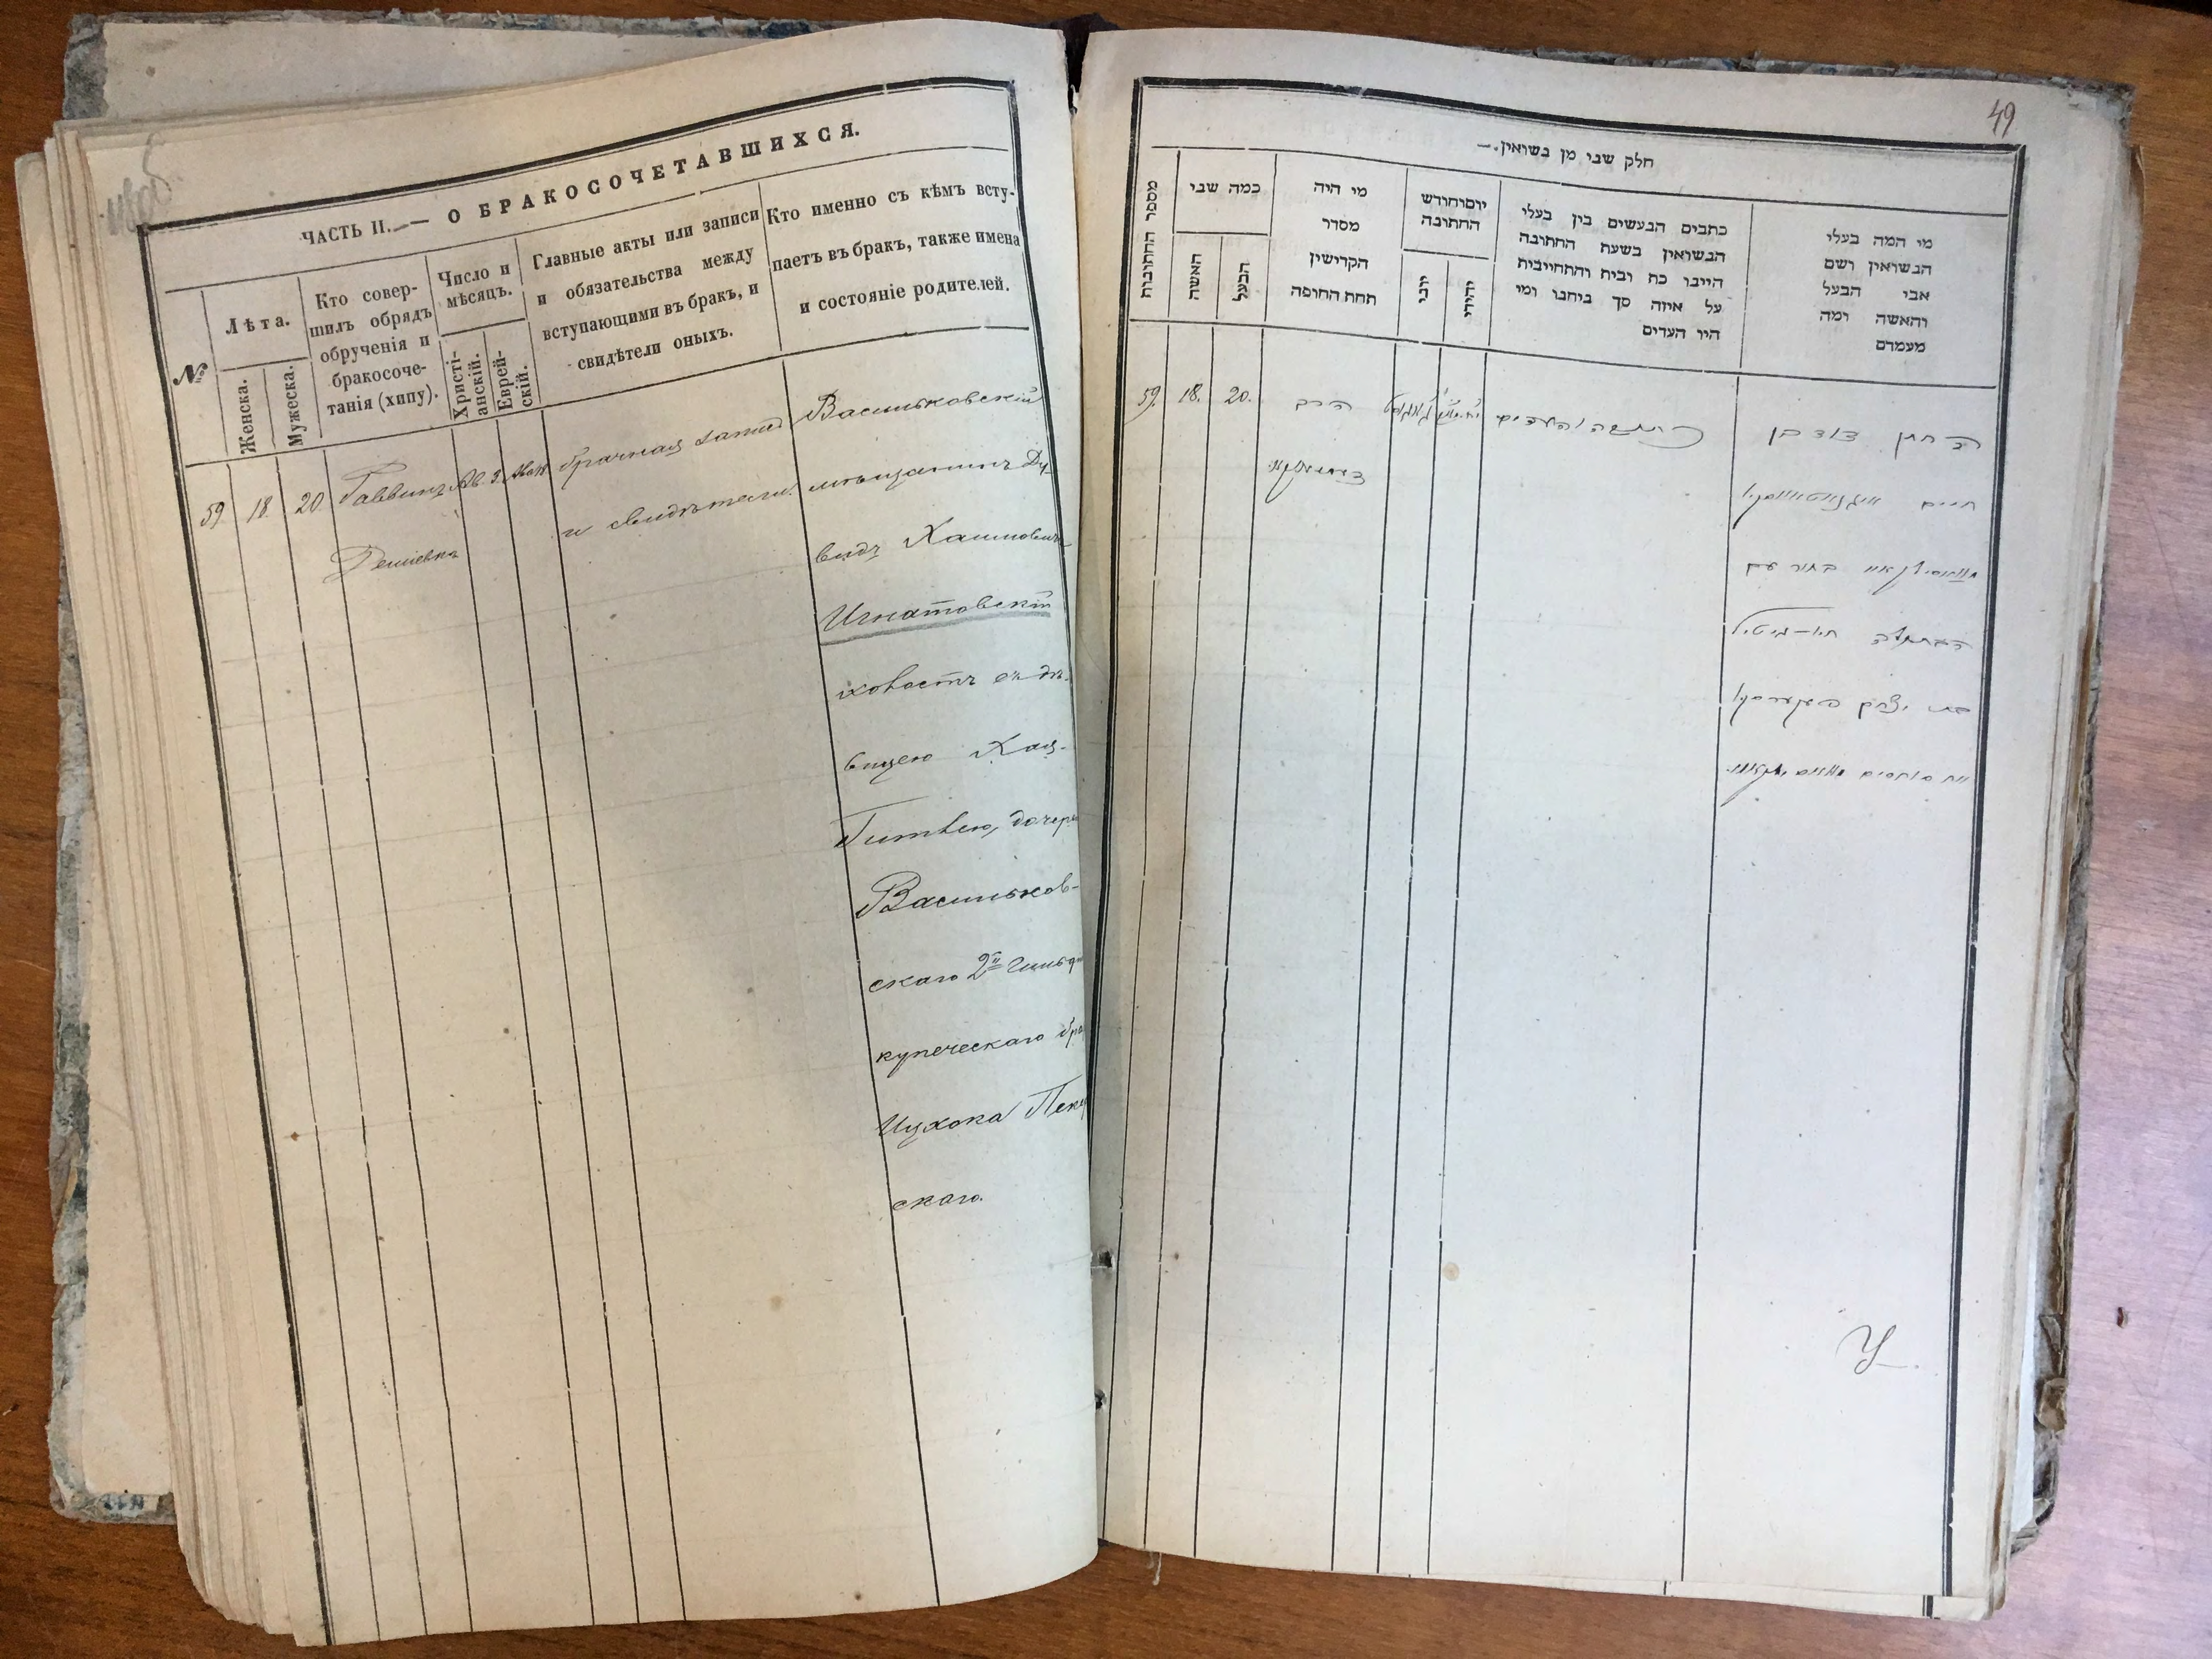 ЧАСТЬ II. — О БРАКОСОЧЕТАВШИХСЯ.
№
Лѣта.
Женска.
Мужеска.
Кто совер-
шилъ обрядъ
обрученія и
бракосоче-
танія (хипу).
Число и
мѣсяцъ.
Христі-
анскій.
Еврей-
скій.
Главные акты или записи
и обязательства между
вступающими въ бракъ, и
свидѣтели оныхъ.
Кто именно съ кѣмъ всту-
паетъ въ бракъ, также имена
и состояніе родителей.
59
18
20
Раввинъ
Ав. 3.
брачная запись
и свидѣтели.
Васильковскій
мѣщанинъ Ду
видъ Хаимовичъ
Игнатовскій
холостъ съ дѣ-
вицею Хая-
Гитлею, дочерью
Васильков-
скаго 2й гильдіи
купеческаго бра
Ицхока Пекар
скаго.
49
חלק שני מן נשואין.—
מספר החתונות
כמה שני
האשה
הבעל
מי היה
מסדר
הקדישין
תחת החופה
יום וחודש
החתונה
יוני
יהודי
כתבים הנעשים בין בעלי
הנשואין בשעת החתונה
היינו כח ובית והתחייבות
על איזה סך ביחנו ומי
היו העדים
מי המה בעלי
הנשואין ושם
אבי הבעל
והאשה ומה
מעמדם
59.
18.
20.
הרב
כתובה והעדים
החתן דוד בן
חיים איגנאטאווסקי
בחור עם
הבתולה חיה-גיטיל
בת יצחק פעקערסקי